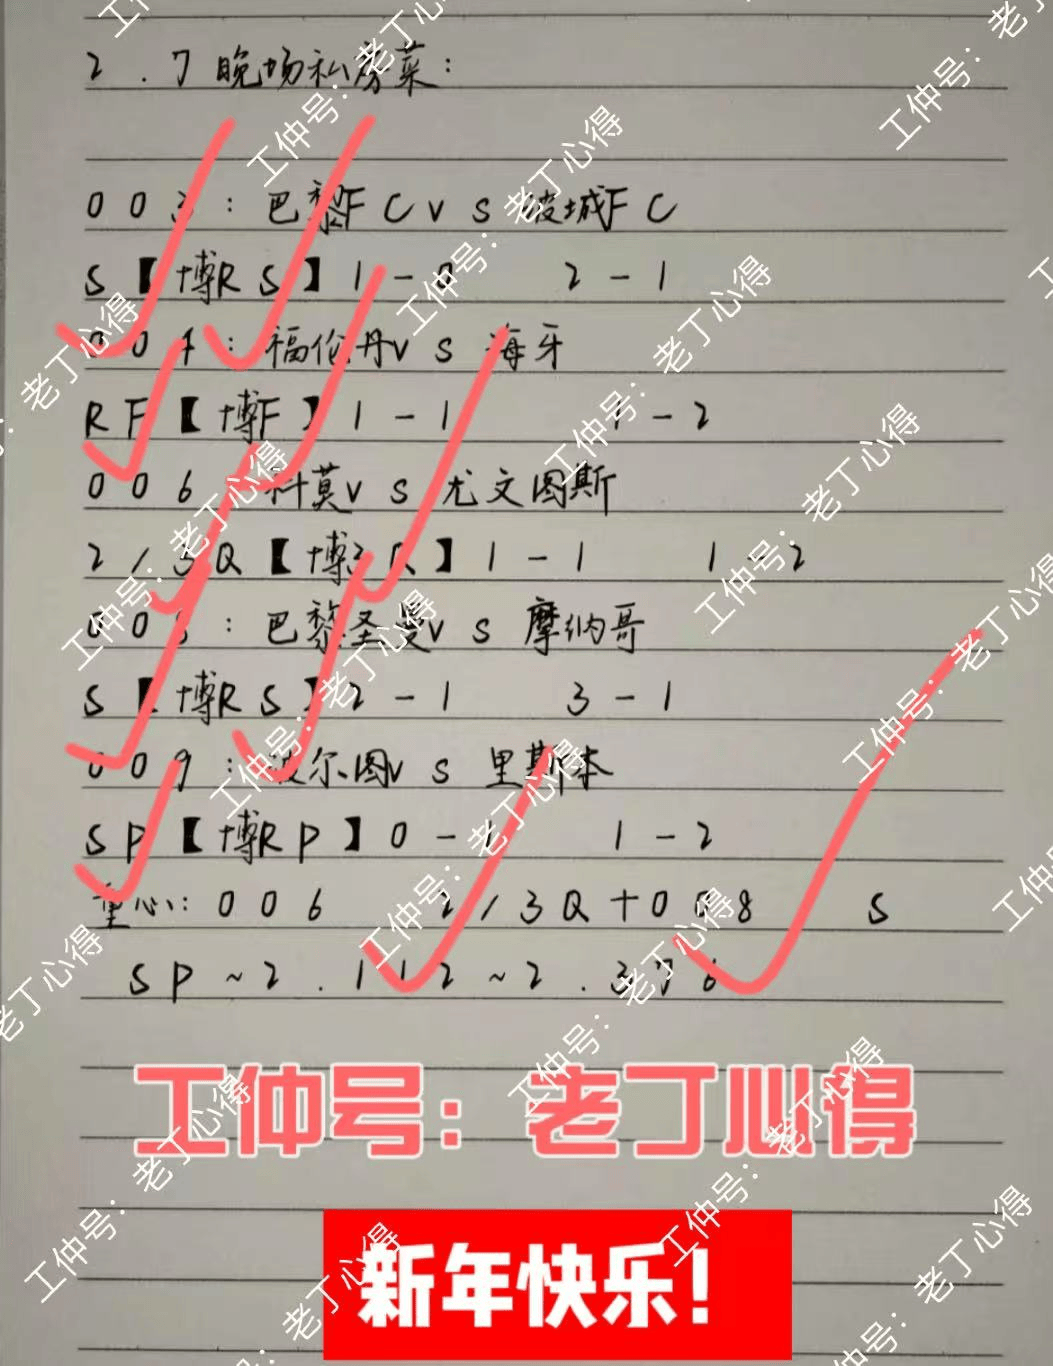 2.7晚场私房菜:
003:巴黎FCvs彼城FC
S【博RS】1-0 2-1
004:福伦丹vs海牙
RF【博F】1-1 1-2
006 科莫vs尤文图斯
2/3Q【博2Q】1-1 1-2
008:巴黎圣曼vs摩纳哥
S【博RS】2-1 3-1
009:波尔图vs里斯本
SP【博RP】0-1 1-2
重心:006 2/3Q+008 S
SP~2.112~2.376
工仲号:老丁心得
新年快乐!